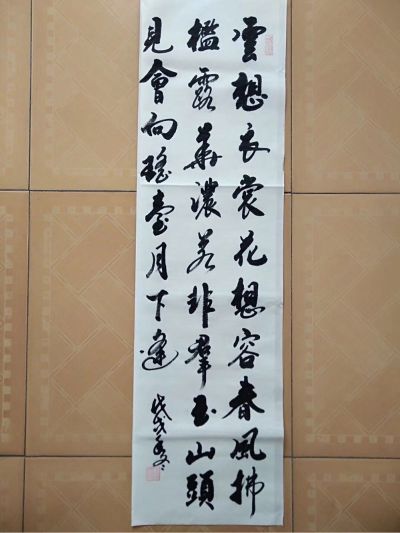 雲想衣裳花想容春風拂
檻露華濃若非羣玉山頭
見會向瑤臺月下逢
戊戌年冬